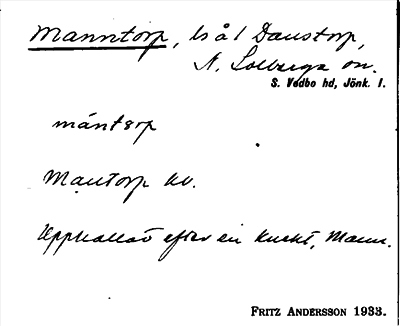 Manntorp, ls å 1 Danstorp,
N. Solberga sn.
S. Vedbo hd, Jönk. l.
mántɔrp
Mantorp kv.
Uppkallat efter en knekt, Mann.
FRITZ ANDERSSON 1933.